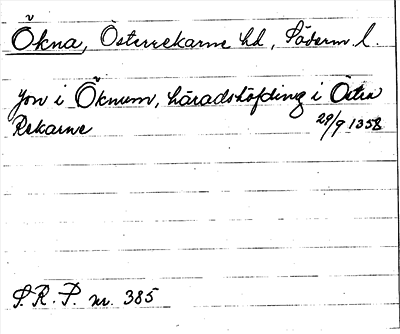 Ökna, Österrekarne hd, Söderm l.
Jon i Öknum, häradshöfding i Östra
Rekarne 29/9 1358
S.R.P. nr. 385